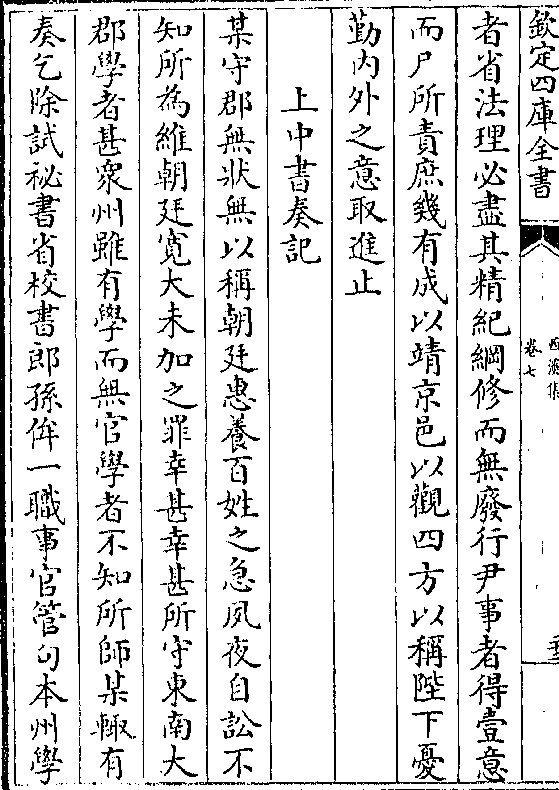 欽定四庫全書
西溪集
卷七
者省法理必盡其精紀綱修而無廢行尹事者得壹意
而尸所責庶幾有成以靖京邑以觀四方以稱陛下憂
勤内外之意取進止
上中書奏記
某守郡無狀無以稱朝廷惠養百姓之急夙夜自訟不
知所為維朝廷寛大未加之罪幸甚幸甚所守東南大
郡學者甚衆州雖有學而無官學者不知所師某輙有
奏乞除試祕書省校書郎孫侔一職事官管勾本州學